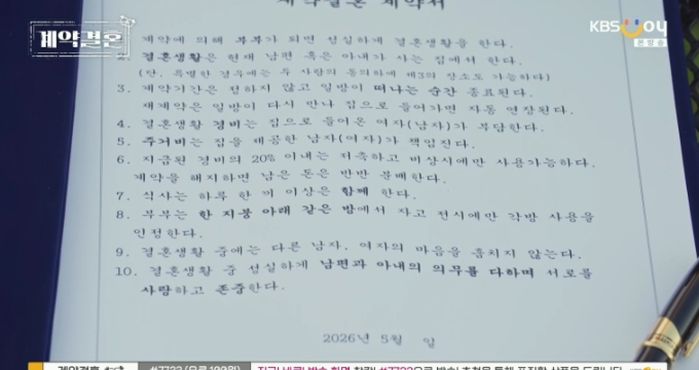 계약결혼 계약서
계약결혼
KBS Joy
본방송
1. 계약에 의해 부부가 되면 성실하게 결혼생활을 한다.
2. 결혼생활은 현재 남편 혹은 아내가 사는 집에서 한다.
(단, 특별한 경우에는 두 사람의 동의하에 제3의 장소도 가능하다)
3. 계약기간은 정하지 않고 일방이 떠나는 순간 종료된다.
재계약은 일방이 다시 만나 집으로 들어가면 자동 연장된다.
4. 결혼생활 경비는 집으로 들어온 여자(남자)가 부담한다.
5. 주거비는 집을 제공한 남자(여자)가 책임진다.
6. 지급된 경비의 20% 이내는 저축하고 비상시에만 사용가능하다.
계약을 해지하면 남은 돈은 반반 분배한다.
7. 식사는 하루 한 끼 이상은 함께 한다.
8. 부부는 한 지붕 아래 같은 방에서 자고 전시에만 각방 사용을
인정한다.
9. 결혼생활 중에는 다른 남자, 여자의 마음을 훔치지 않는다.
10. 결혼생활 중 성실하게 남편과 아내의 의무를 다하며 서로를
사랑하고 존중한다.
2026년 5월 일
계약결혼 #7733 (유료 100원)